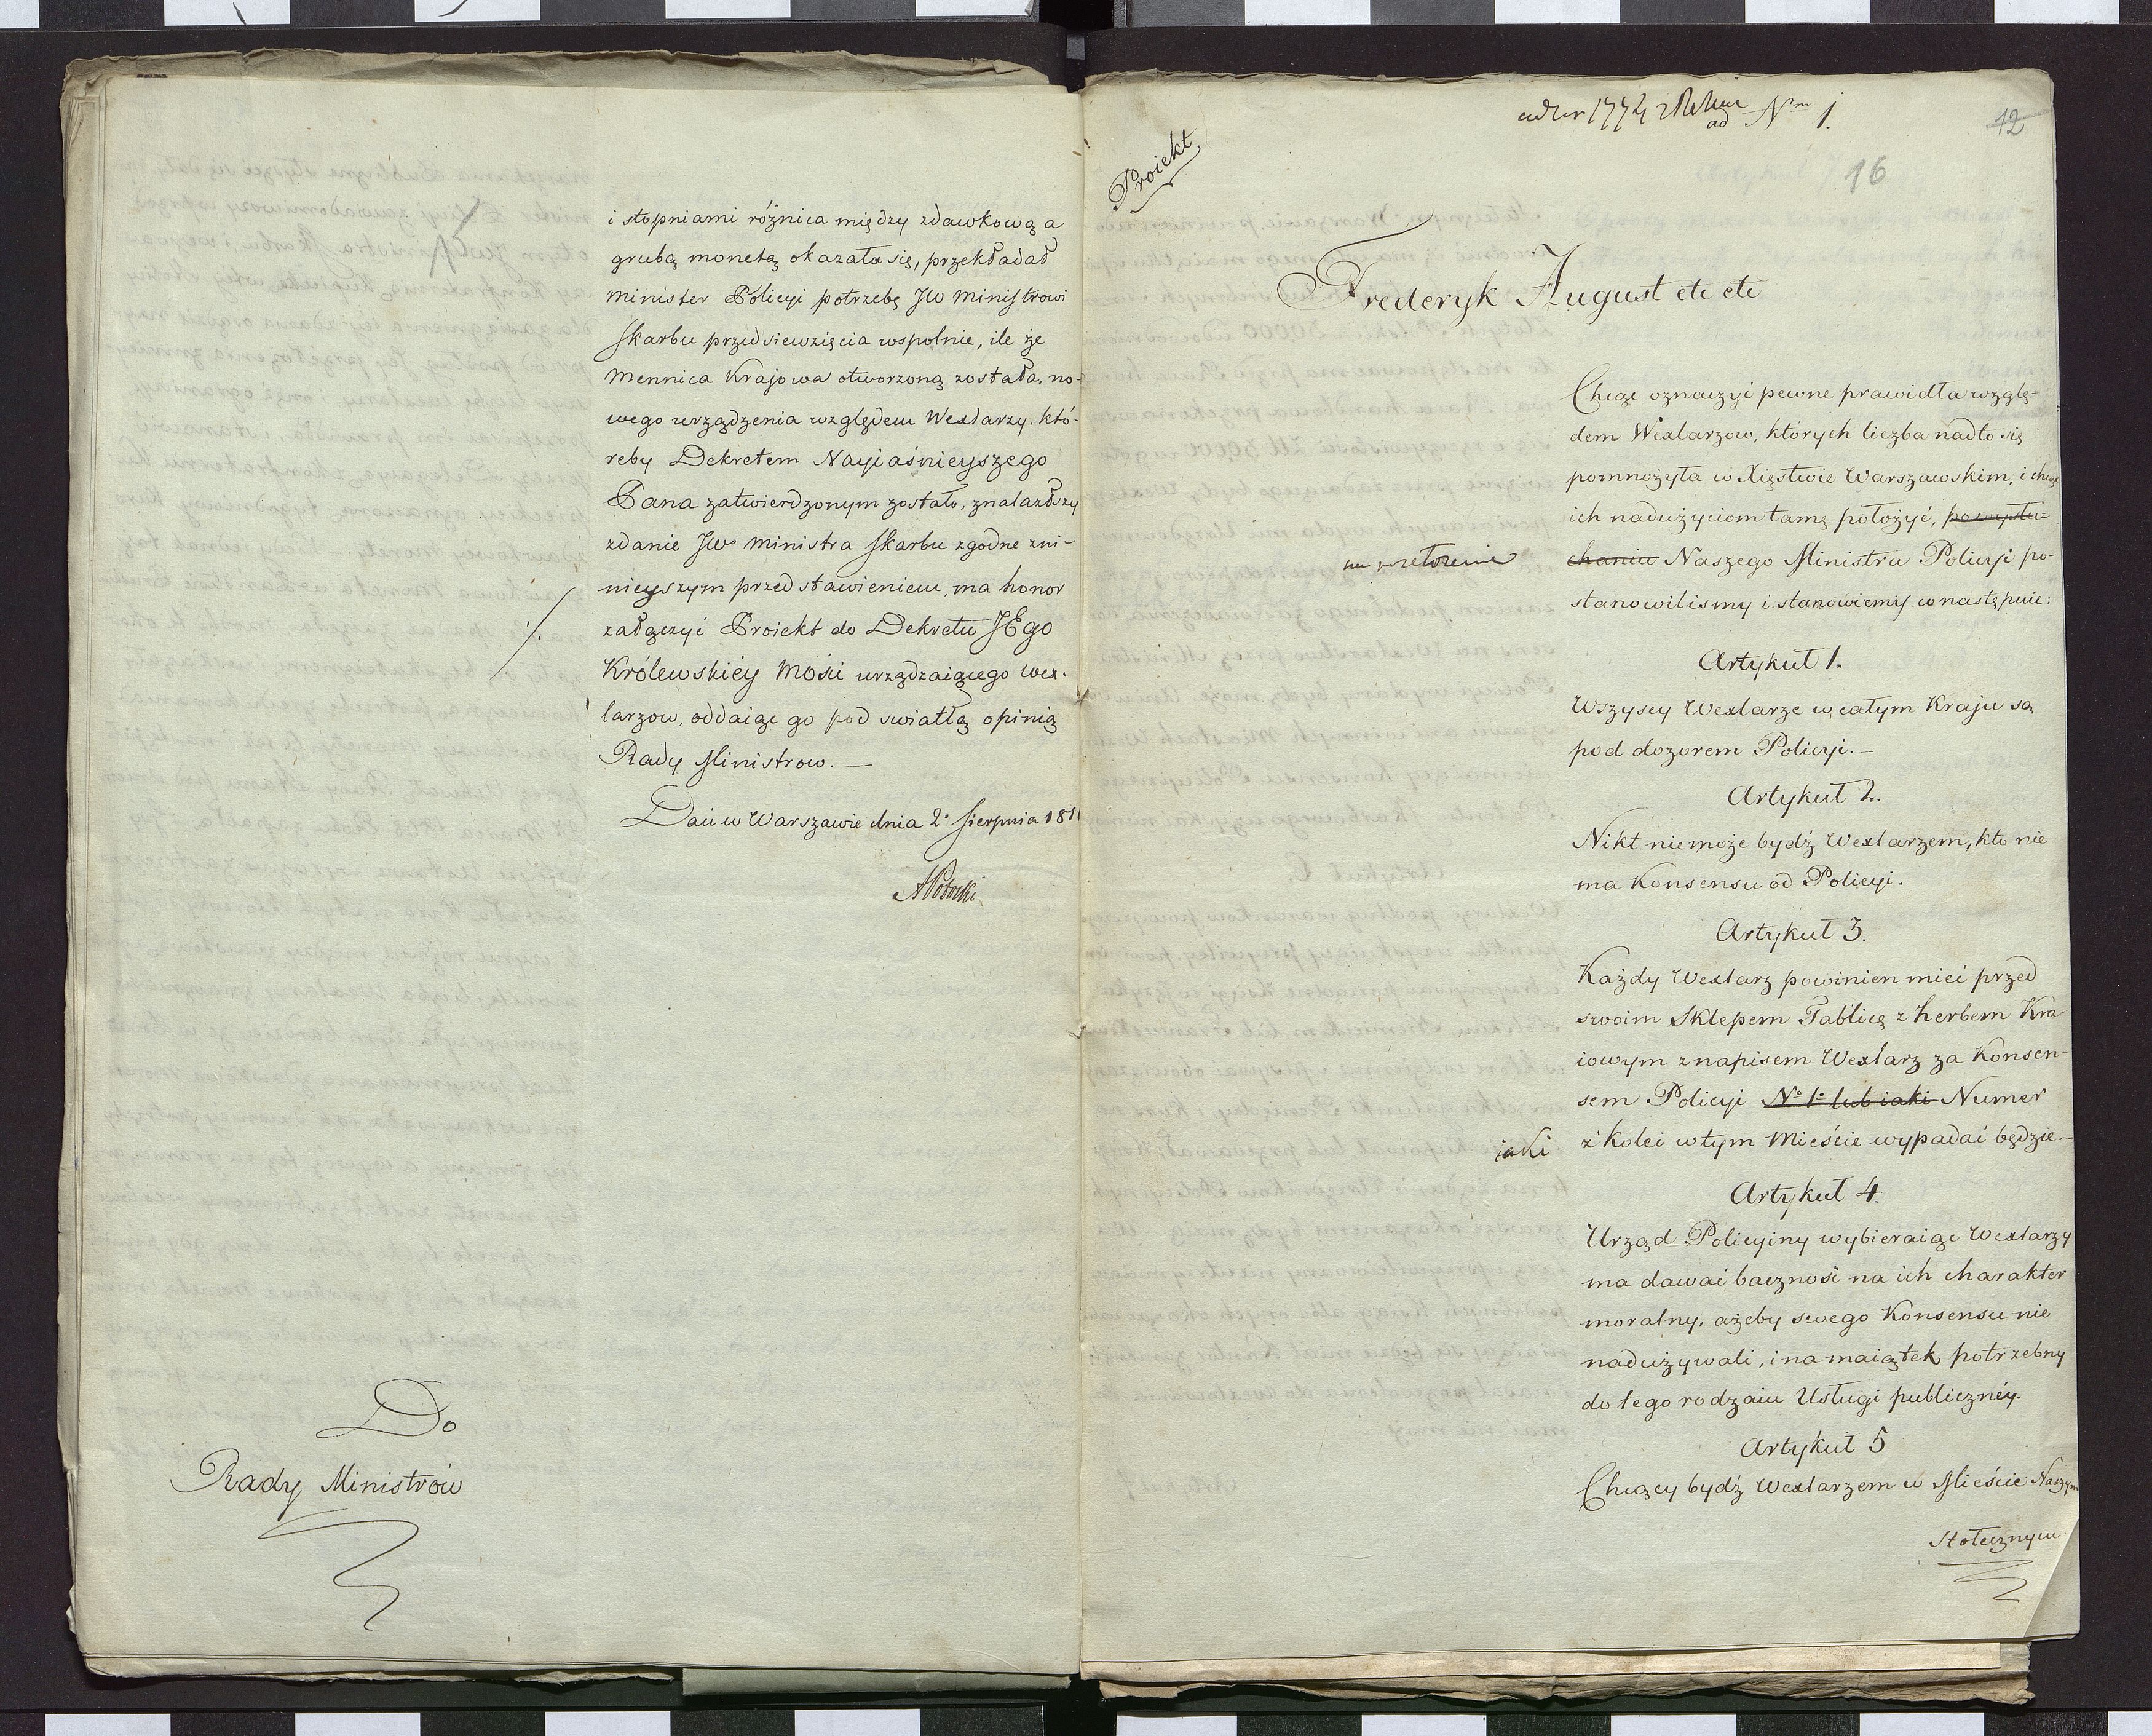 i stopniami różnica między zdawkową a
grubą monetą okazała się, przekładał
Minister Policyi potrzebę JW Ministrowi
Skarbu przedsiewzięcia wspolnie, ile że
Mennica Krajowa otworzoną została, no-
wego urządzenia względem Wexlarzy, któ-
reby Dekretem Nayiaśnieyszego
Pana zatwierdzonym zostało, znalazłszy
zdanie JW Ministra Skarbu zgodne zni-
nieyszym przedstawieniem, ma honor
załączyć Proiekt do Dekretu JEgo
Królewskiéy Mości urządzaiącego wex-
larzow, oddaiąc go pod swiatłą opinią
Rady Ministrow. —
Dan w Warszawie dnia 2º Sierpnia 181
APotocki
Do
Rady Ministrów
Proiekt
ad Nm 1.
12
16
Frederyk August etc etc
Chcąc oznaczyć pewne prawidła wzglę-
dem Wexlarzow, których liczba nadto się
pomnożyła w Xięstwie Warszawskim, i chcąc
ich nadużyciom tamę położyć, po wysłu-
chaniu Naszego Ministra Policyi po-
na przełożenie
stanowilismy i stanowiemy co następuie:
Artykuł 1.
Wszyscy Wexlarze w całym Kraju są
pod dozorem Policyi. —
Artykuł 2.
Nikt niemoże bydź Wexlarzem, kto nie
ma Konsensu od Policyi.
Artykuł 3.
Każdy Wexlarz powinien mieć przed
swoim Sklepem Tablicę z herbem Kra-
iowym z napisem Wexlarz za Konsen-
sem Policyi Nº 1º lub iaki Numer
iaki z Kolei w tym Mieście wypadać będzie. —
Artykuł 4.
Urząd Policyiny wybieraiąc Wexlarzy
ma dawać baczność na ich charakter
moralny, ażeby swego Konsensu nie
nadużywali, i na maiątek potrzebny
do tego rodzaiu Usługi publicznéy.
Artykuł 5
Chcący bydź Wexlarzem w Mieście Naszym
Stołecznym